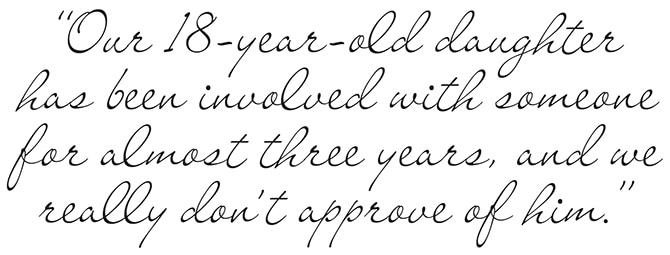 “Our 18-year-old daughter
has been involved with someone
for almost three years, and we
really don't approve of him.”